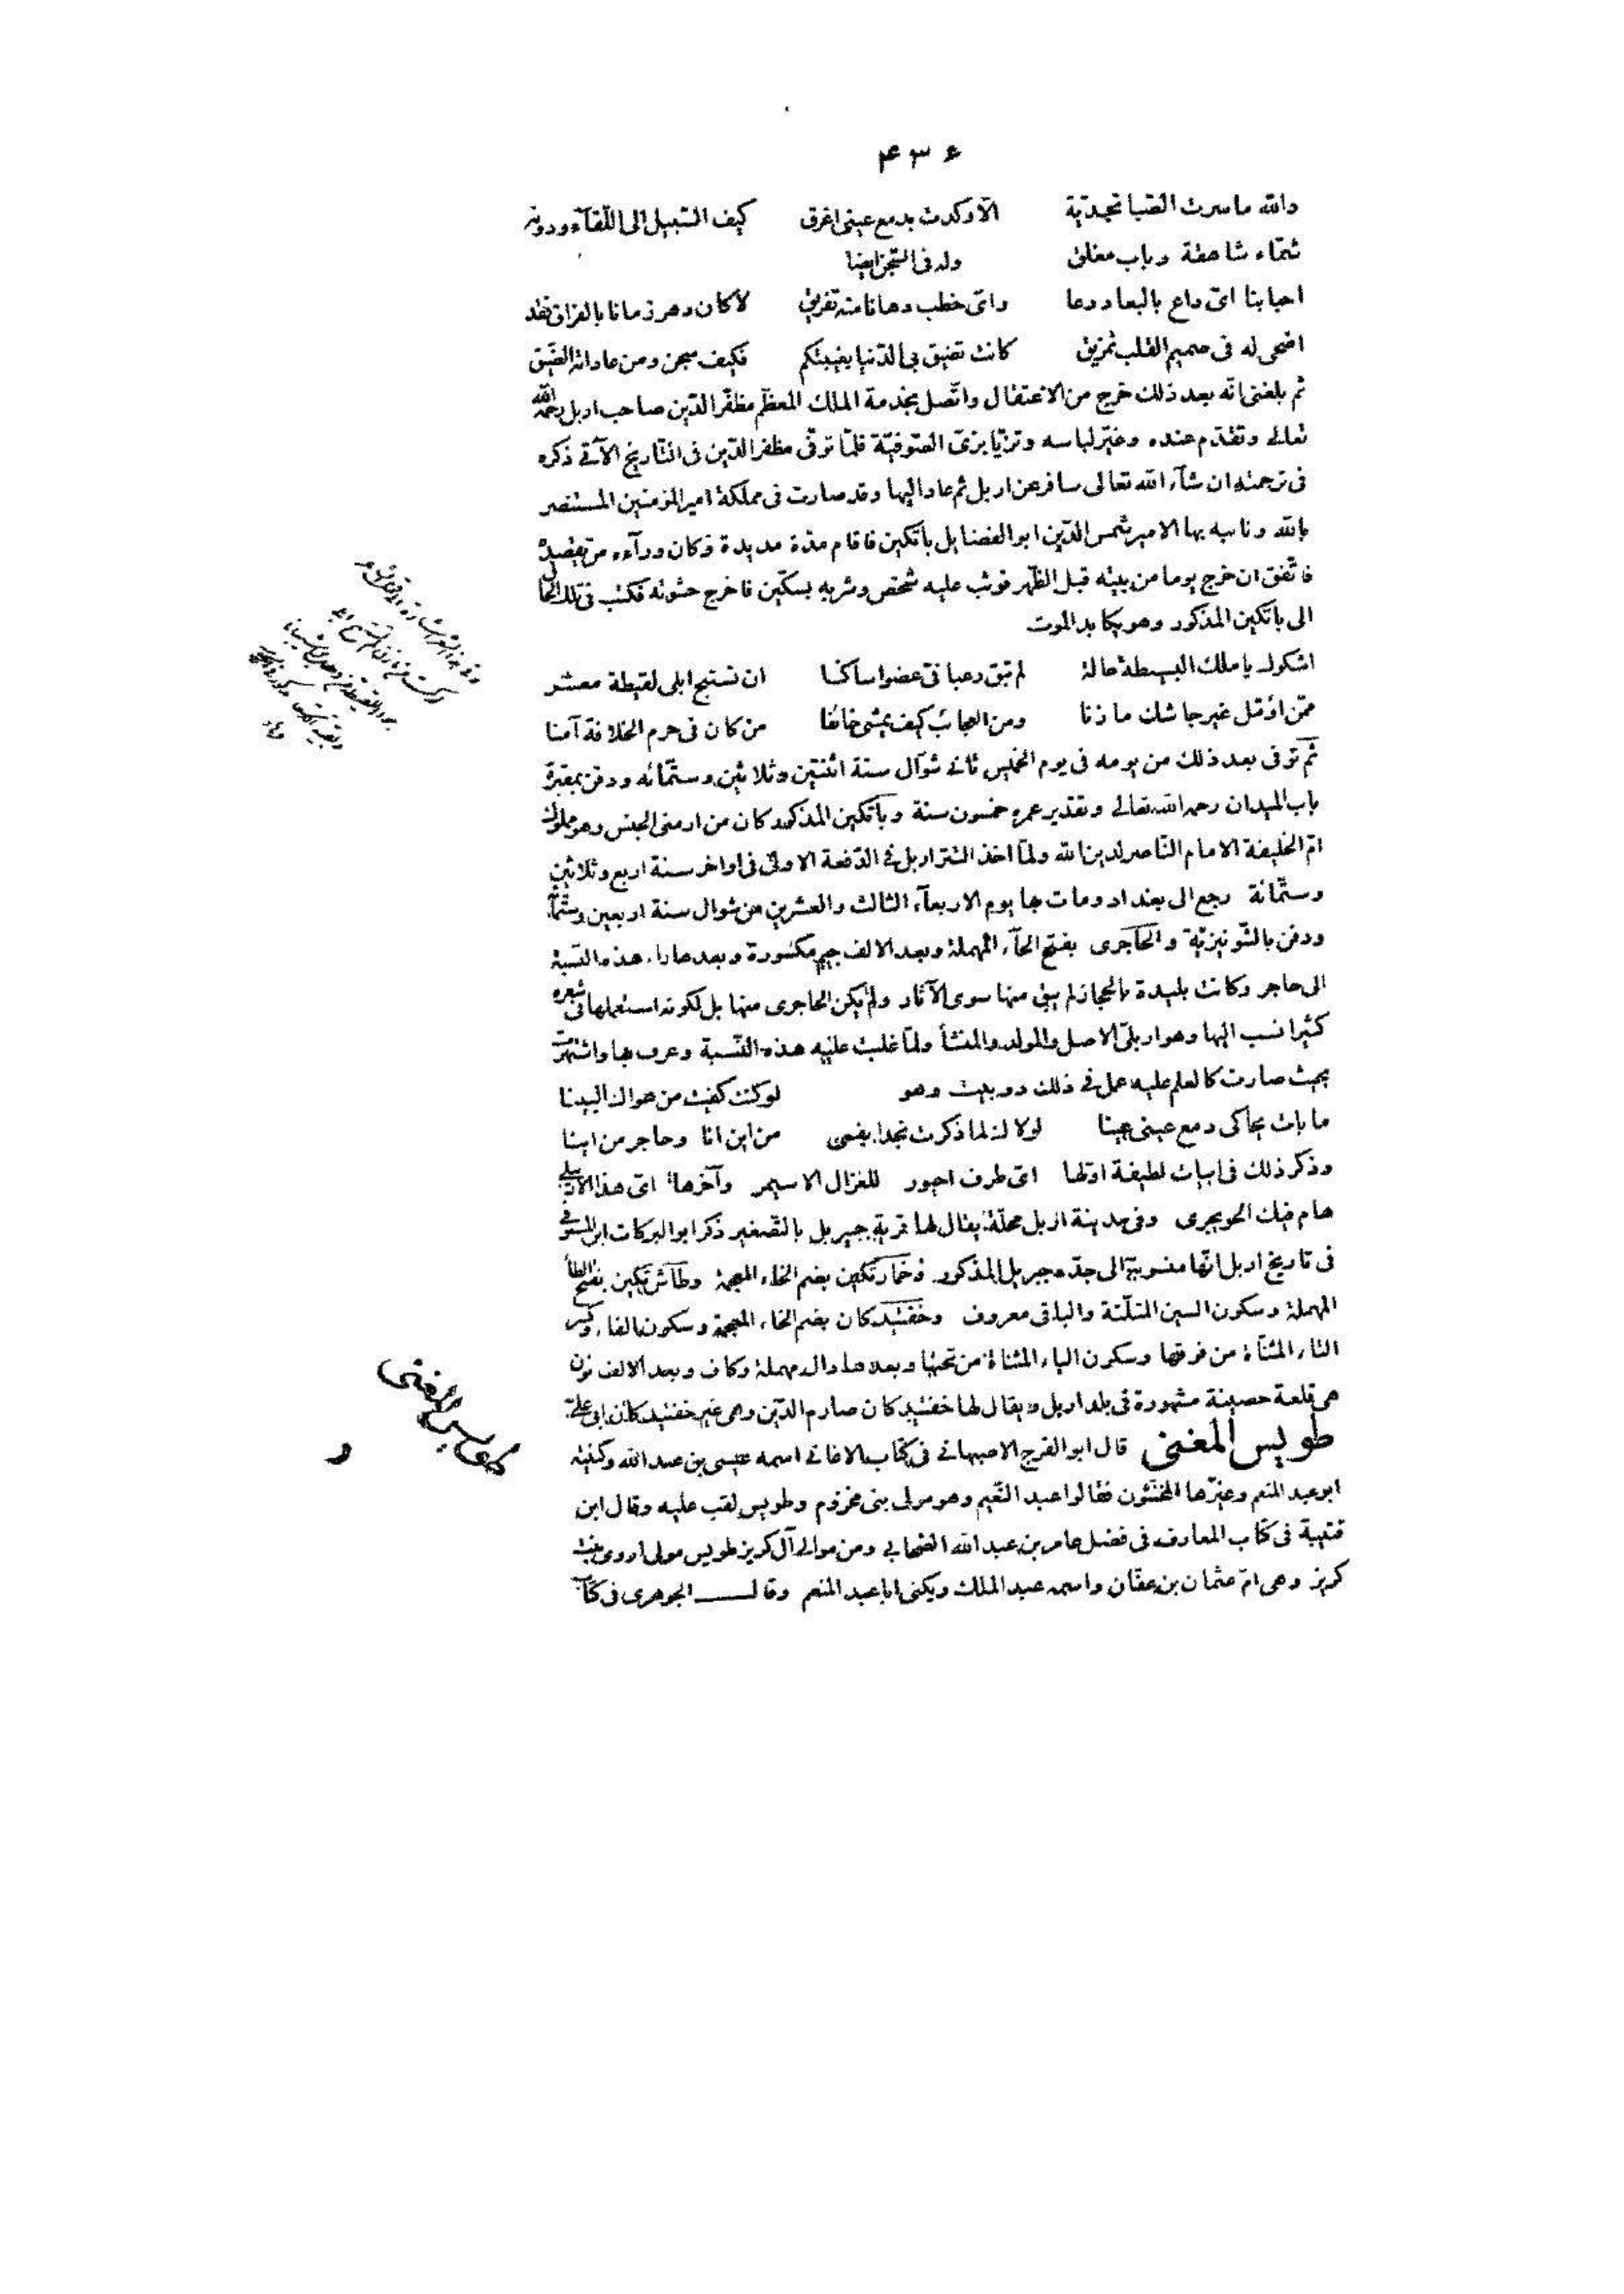 ۴۳۶
والله ما سرت الصّبا نجديّة الّا وكدت بدمع عينى اغرق كيف السّبيل الى اللّقآء ودونه
شمّاء شاهقة وباب مغلق وله فى السّجن ايضا
احبابنا اىّ داع بالبعاد دعا واىّ خطب دهانا منه تفريق لا كان دهر زمانا بالفراق فقد
اضحى له فى صميم القلب تمزيق كانت تضيق بى الدّنيا بغيبتكم فكيف سجن ومن عاداته الضّيق
ثم بلغنى انّه بعد ذلك خرج من الاعتقال واتّصل بخدمة الملك المعظّم مظفّر الدّين صاحب اربل رحمه الله
تعالى وتقدّم عنده وغيّر لباسه وتزيّا بزىّ الصّوفيّة فلمّا توفّى مظفر الدّين فى التّاريخ الآتى ذكره
فى ترجمته ان شآء الله تعالى سافر عن اربل ثم عاد اليها وقد صارت فى مملكة امير المؤمنين المستنصر
بالله ونائبه بها الامير شمس الدّين ابو الفضايل باتكين فاقام مدّة مديدة وكان ورآءه من يقصده
فاتّفق ان خرج يوما من بيته قبل الظّهر فوثب عليه شخص وضربه بسكّين فاخرج حشوته فكتب فى تلك الحال
الى باتكين المذكور وهو يكابد الموت
اشكوك يا ملك البسيطة حالة لم تبق رعبا فىّ عضوا ساكنا ان تستبح ابلى لقيطة معشر
ممّن اؤمّل غير جاشك مازنا ومن العجائب كيف يمشى خائفا من كان فى حرم الخلافة آمنا
ثم توفى بعد ذلك من يومه فى يوم الخميس ثانى شوّال سنة اثنتين وثلاثين وستّمائه ودفن بمقبرة
باب الميدان رحمه الله تعالى وتقدير عمره خمسون سنة وباتكين المذكور كان من ارمنى الجنس وهو مملوك
امّ الخليفة الامام النّاصر لدين الله ولمّا اخذ التتر اربل فى الدّفعة الاولى فى اواخر سنة اربع وثلاثين
وستّمائة رجع الى بغداد ومات بها يوم الاربعآء الثالث والعشرين من شوال سنة اربعين وستّمائة
ودفن بالشّونيزيّة والحاجرى بفتح الحآء المهملة وبعد الالف جيم مكسورة وبعدها راء هذه النّسبة
الى حاجر وكانت بليدة بالحجاز لم يبق منها سوى الآثار ولم يكن الحاجرى منها بل لكونه استعملها فى شعره
كثيرا نسب اليها وهو اربلىّ الاصل والمولد والمنشأ ولمّا غلبت عليه هذه النّسبة وعرف بها واشتهرت
بحيث صارت كالعلم عليه عمل فى ذلك دو بيت وهو لو كنت كفيت من هواك البينا
ما بات يحاكى دمع عينى عينا لولاك لما ذكرت نجدا بفمى من اين انا وحاجر من اينا
وذكر ذلك فى ابيات لطيفة اوّلها اىّ طرف احور للغزال الاسيمر وآخرها اىّ هذا الاربلى
هام فيك الحويجرى وفى مدينة اربل محلّة يقال لها قرية جبريل بالتّصغير ذكر ابو البركات ابن المستوفى
فى تاريخ اربل انّها منسوبة الى جدّه جبريل المذكور وخمارتكين بضم الخاء المعجمة وطاش تكين بفتح الطآء
المهملة وسكون السين المثلّثة والباقى معروف وخفتيدكان بضم الخاء المعجمة وسكون الفاء وكسر
التاء المثنّاة من فوقها وسكون الياء المثناة من تحتها وبعدها دال مهملة وكاف وبعد الالف نون
هى قلعة حصينة مشهورة فى بلد اربل ويقال لها خفتيدكان صارم الدّين وهى غير خفتيدكان ابى علىّ
طويس المغنى قال ابو الفرج الاصبهانى فى كتاب الاغانى اسمه عيسى بن عبد الله وكنيته
ابو عبد المنعم وغيّرها المخنّثون فقالوا عبد النّعيم وهو مولى بنى مخزوم وطويس لقب عليه وقال ابن
قتيبة فى كتاب المعارف فى فصل عامر بن عبد الله الصّحابى ومن موالى آل كريز طويس مولى اروى بنت
كريز وهى امّ عثمان بن عفّان واسمه عبد الملك ويكنى ابا عبد المنعم وقال الجوهرى فى كتآ
طويس المغنى